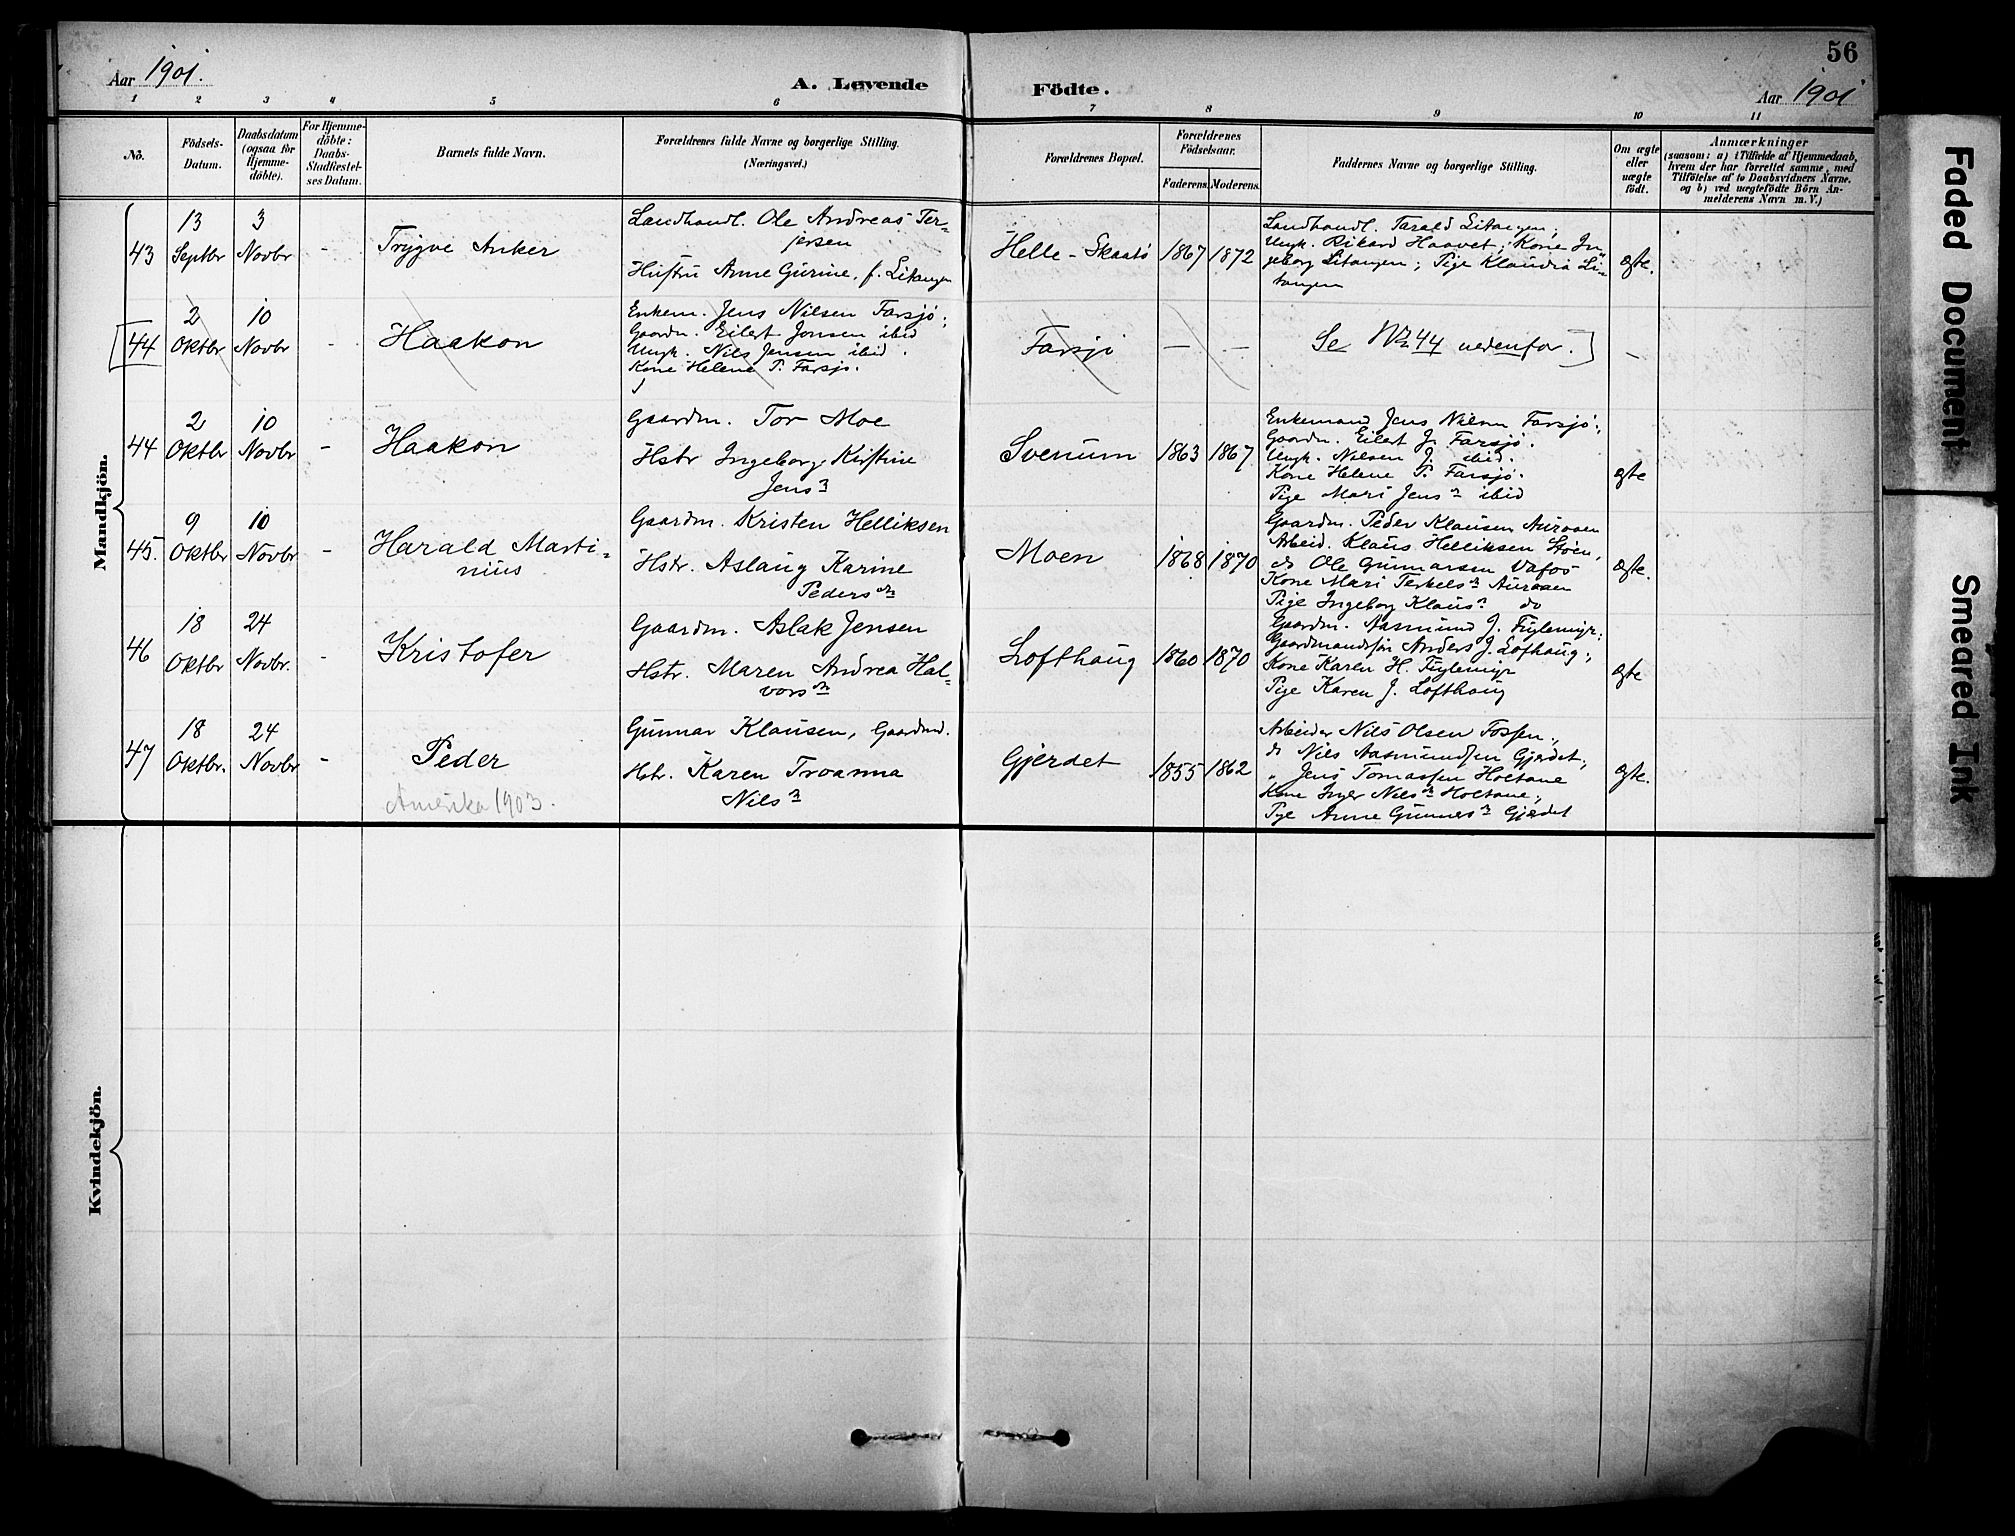 56
Aar 1901.
A. Levende Födte.
Aar 1901
1 2 3 4 5 6 7 8 9 10 11
No.
Födsels-Datum.
Daabsdatum (ogsaa for Hjemme-döbte).
For Hjemme-döbte: Daabs-Stadfæstel-ses Datum.
Barnets fulde Navn.
Forældrenes fulde Navne og borgerlige Stilling. (Næringsvei.)
Forældrenes Bopæl.
Forældrenes Födselsaar.
Faderens. Moderens.
Faddernes Navne og borgerlige Stilling.
Om ægte eller uægte födt.
Anmærkninger
(saasom: a) i Tilfælde af Hjemmedaab,
hvem der har forrettet samme, med
Tilföielse af to Daabsvidners Navne,
og b) ved uægtefödte Börn An-
melderens Navn m. V.)
Mandkjön.
43
13 Septbr
3 Novbr
-
Trygve Anker
Landhandl. Ole Andreas Ter-
jersen
Hustru Anne Gurine, f. Litangen
Helle - Skaatö
1867
1872
Landhandl. Tarald Litangen;
Ungk. Rikard Haavet; Kone In-
geborg Litangen; Pige Klaudia Li-
tangen
ægte.
[44
2 Oktbr
10 Novbr
-
Haakon
Enkem. Jens Nilsen Farsjö;
Gaardm. Eilert Jonsen ibid
Ungk. Nils Jensen ibid.
Kone Helene T. Farsjö.
Farsjö
-
-
Se No 44 nedenfor.]
-
44
2 Oktbr
10 Novbr
-
Haakon
Gaardm. Tor Moe
Hstr Ingeborg Kirstine
Jensn
Svenum
1863
1867
Enkemand Jens Nilsen Farsjö;
Gaardm. Eilert J. Farsjö.
Ungk. Nilsen J. ibid.
Kone Helene T. Farsjö.
Pige Mari Jensn ibid
ægte
45.
9 Oktbr
10 Novbr
-
Harald Marti-
nius
Gaardm. Kristen Helliksen
Hstr. Aslaug Karine
Pedersdn
Moen
1868
1870
Gaardm. Peder Klausen Auraaen
Arbeid. Klaus Helliksen Støen,
do Ole Gunnarsen Vafos
Kone Mari Terkelsn Auraaen
Pige Ingeborg Klausn do
ægte.
46
18 Oktbr
24 Novbr.
-
Kristofer
Gaardm. Aslak Jensen
Hstr. Maren Andrea Hal-
vorsdn
Lofthaug
1860
1870
Gaardm. Aasmund J. Fuglemyr;
Gaardmandssön Anders J. Lofthaug;
Kone Karen H. Fuglemyr
Pige Karen J. Lofthaug
ægte
47
18 Oktbr.
24 Novbr
-
Peder
Amerika 1903.
Gunnar Klausen, Gaardmd.
Hstr. Karen Troanna
Nilsn
Gjerdet
1855
1862
Arbeider Nils Olsen Fossen;
do Nils Aasmundsen Gjerdet;
" Jens Tomassen Holtane
Kone Inger Nilsn Holtane;
Pige Anne Gunnersn Gjerdet
ægte.
Kvindekjön.
Faded Document.
Smeared Ink